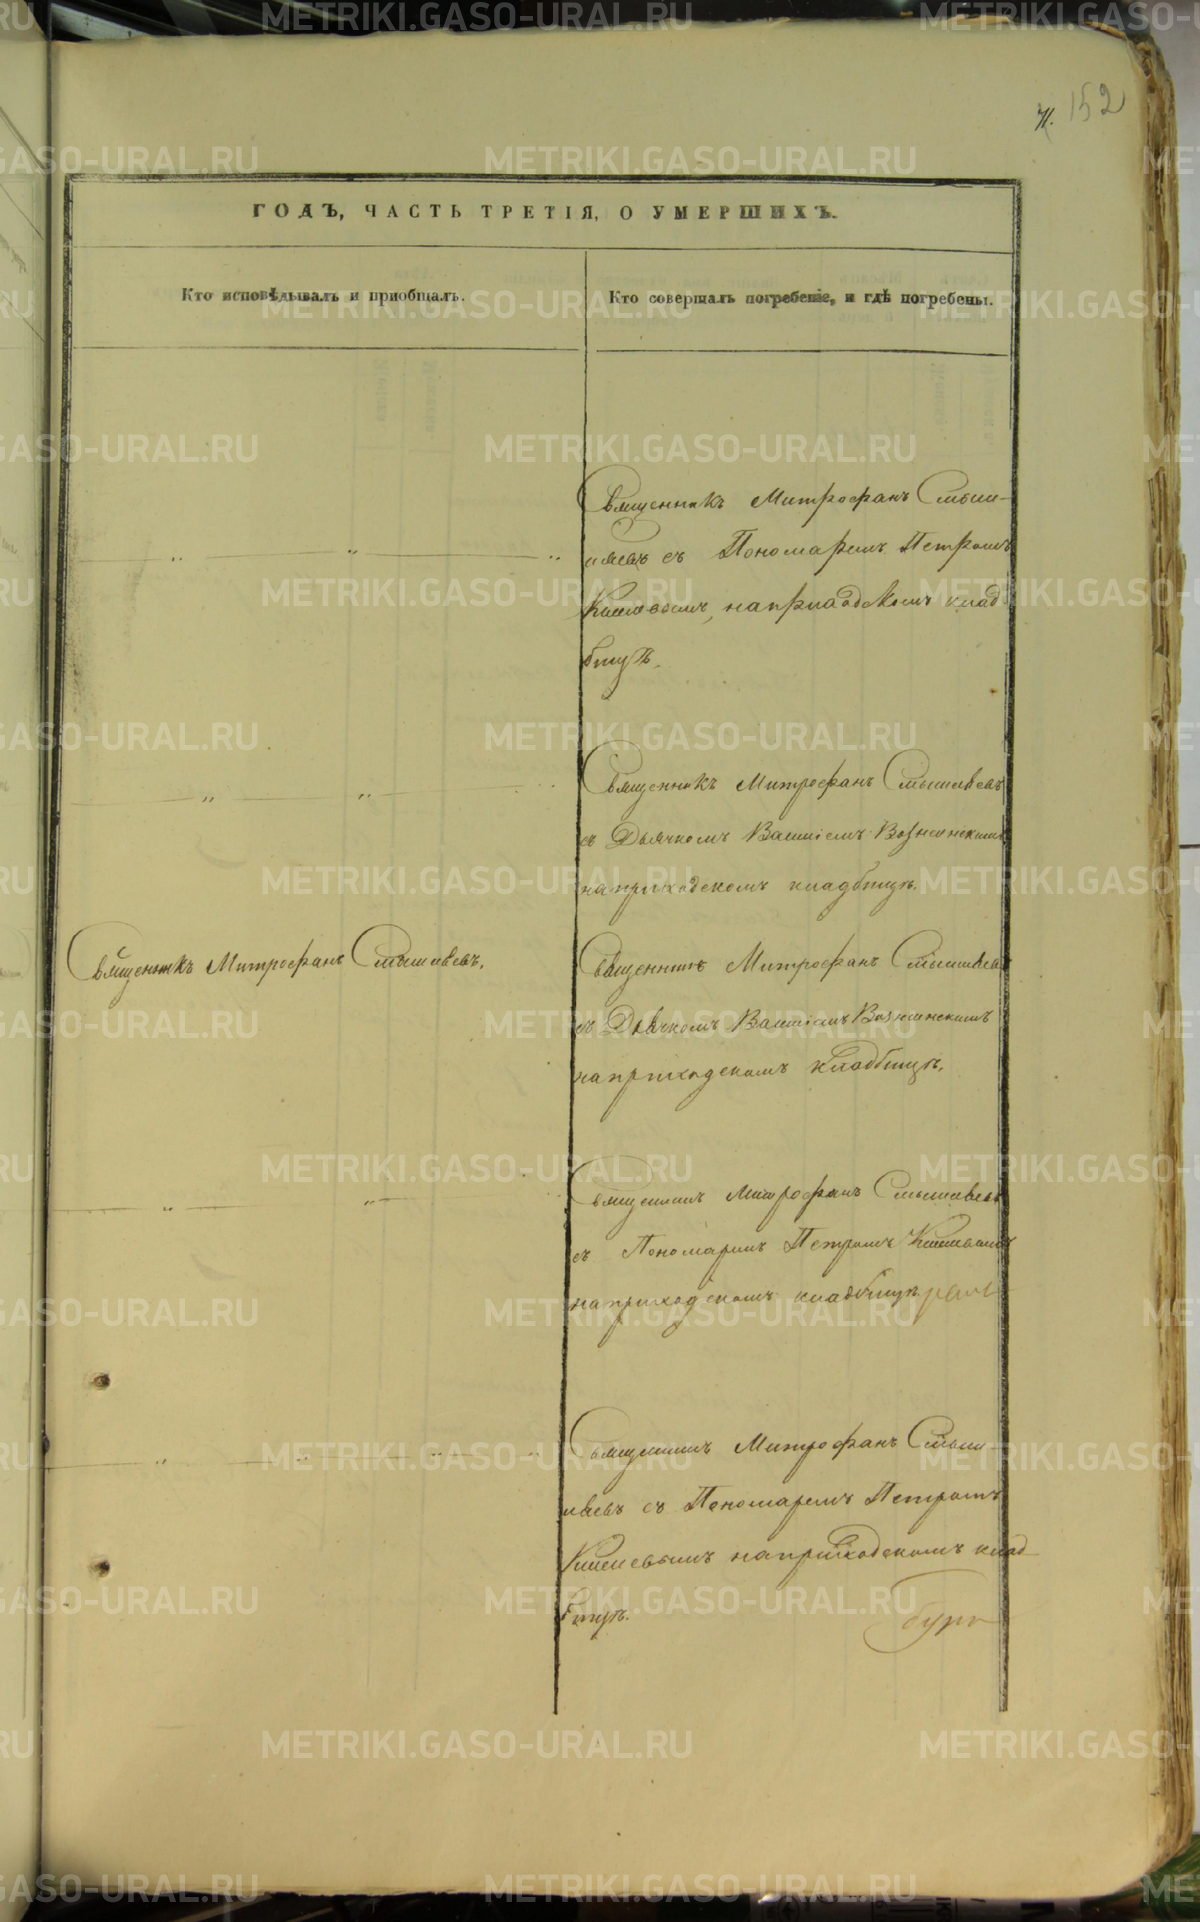 71. 152
ГОДЪ, ЧАСТЬ ТРЕТІЯ, О УМЕРШИХЪ.
Кто исповѣдывалъ и пріобщалъ.
Кто совершалъ погребеніе, и гдѣ погребены.
Священникъ Митрофанъ Смыш-
ляевъ съ Пономаремъ Петромъ
на приходскомъ клад
бищѣ.
Священникъ Митрофанъ Смышляевъ
съ Дьячкомъ Василіемъ Вознесенскимъ
на приходскомъ кладбищѣ.
Священникъ Митрофанъ Смышляевъ,
Священникъ Митрофанъ Смышляевъ
съ Дьячкомъ Василіемъ Вознесенскимъ
на приходскомъ кладбищѣ.
Священникъ Митрофанъ Смышляевъ
съ Пономаремъ Петромъ
на приходскомъ кладбищѣ
Священникъ Митрофанъ Смыш-
ляевъ съ Пономаремъ Петромъ
на приходскомъ клад
бищѣ.
METRIKI.GASO-URAL.RU